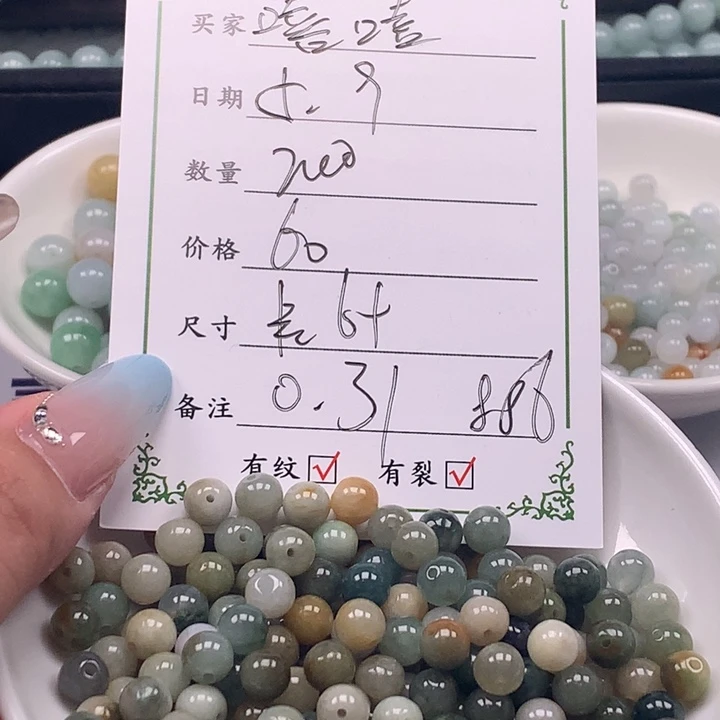 买家 嘻嘻
日期 5.9
数量 200
价格 60
尺寸 长 6+
备注 0.31 886
有纹 ☑ 有裂 ☑